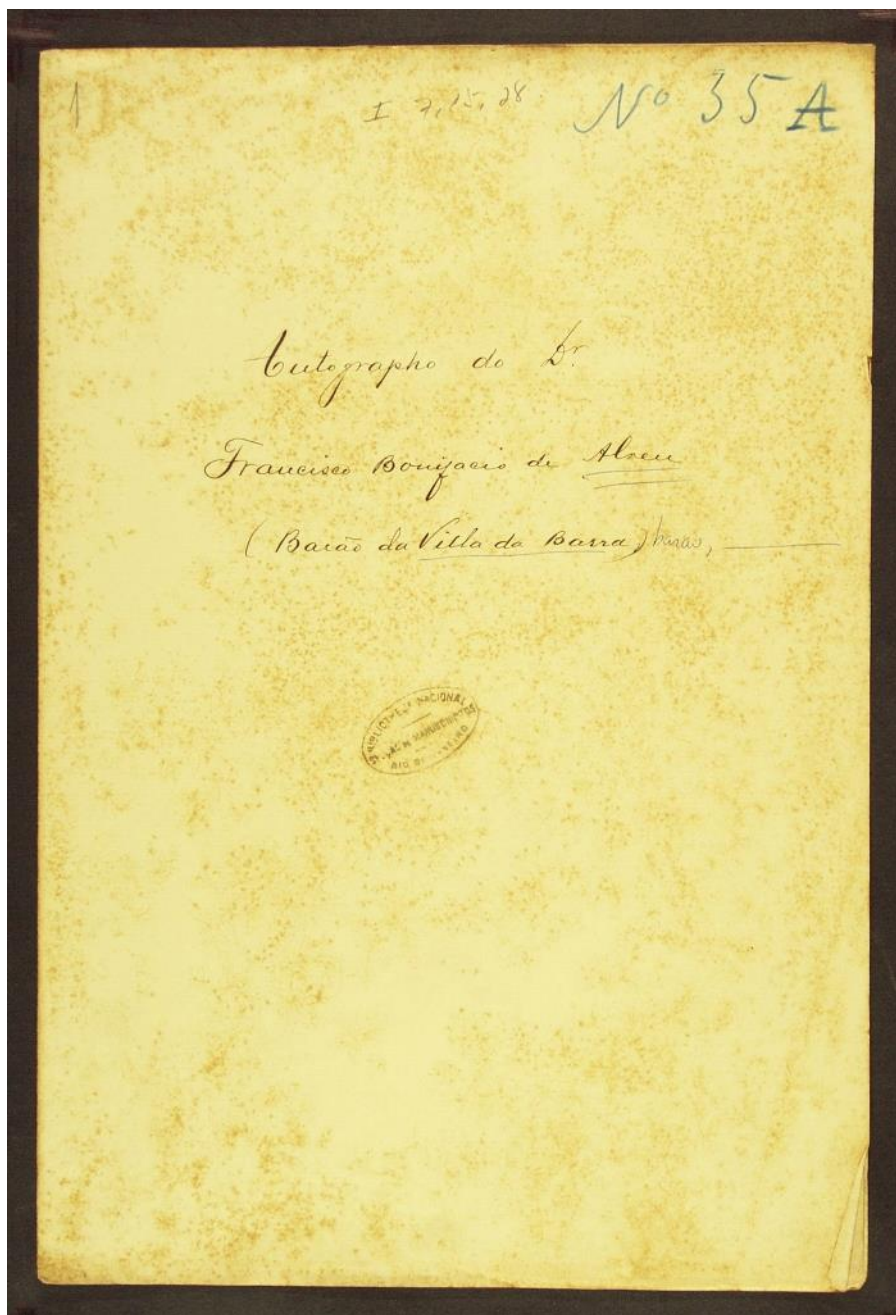 1
I 7,15,28
Nº 35 A
Autographo do Dr.
Francisco Bonifacio de Abreu
(Barão da Villa da Barra) barão,
BIBLIOTHECA NACIONAL
MANUSCRIPTOS
RIO DE JANEIRO